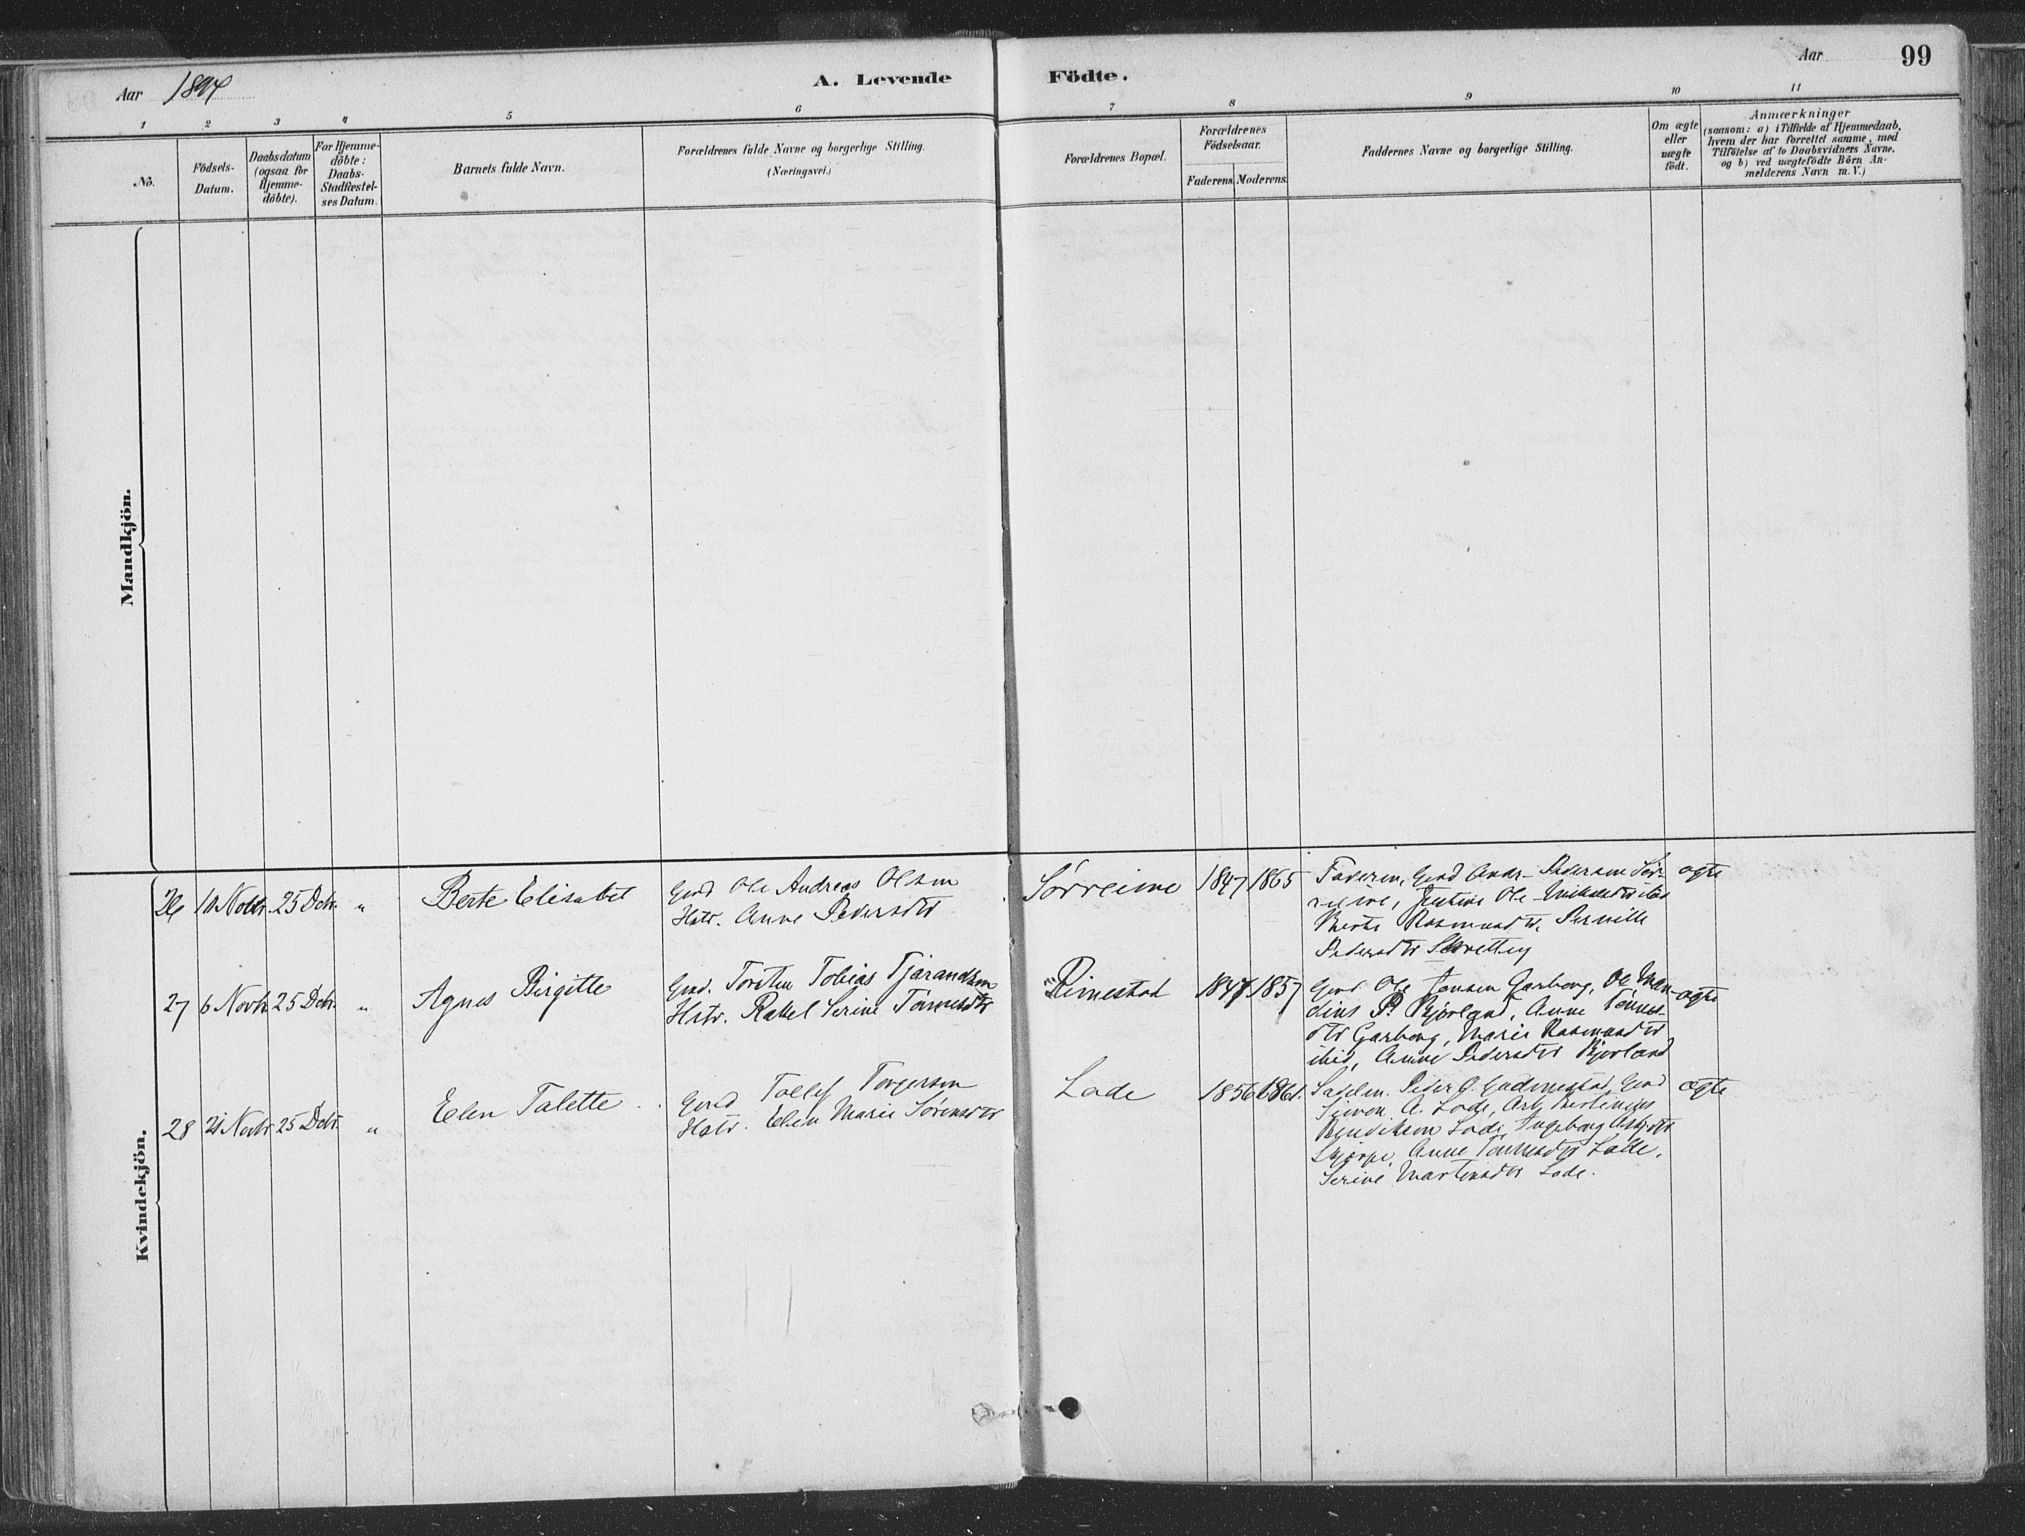 Aar 1894
A. Levende Födte.
Aar
99
1 2 3 4 5 6 7 8 9 10 11
No.
Födsels-
Datum.
Daabsdatum
(ogsaa for
Hjemme-
døbte).
For Hjemme-
döbte:
Daabs-
Stadfæstel-
ses Datum.
Barnets fulde Navn.
Forældrenes fulde Navne og borgerlige Stilling.
(Næringsvei.)
Forældrenes Bopæl.
Forældrenes
Födselsaar.
Faderens. Moderens.
Faddernes Navne og borgerlige Stilling.
Om ægte
eller
uægte
födt.
Anmærkninger
(saasom: a) i Tilfælde af Hjemmedaab,
hvem der har forrettet samme, med
Tilföielse af to Daabsvidners Navne,
og b) ved uægtefödte Börn An-
melderens Navn m. V.)
Mandkjön.
Kvindekjön.
26 10 Novbr. 25 Decbr. "
Berte Elisabet
Gmd Ole Andreas Olsen
Hstr. Anne Pedersdtr
Sørreime
1847 1865
Faderen, Gmd Andr. Pedersen Sør-
reime,
Berte Rasmusdtr, Pernille
Pedersdtr
ægte
27 6 Novbr. 25 Decbr. "
Agnes Birgitte
Gmd. Torsten Tobias Tjerandsen
Hstr. Rakel Serine Tønnesdtr
Rimestad
1847 1857
Gmd Ole Jonsen Garborg, Ole Man-
dius P. Bjorland, Anne Tønnes-
dtr Garborg, Marie Rasmusdtr
ibid, Anne Pedersdtr Bjorland
ægte
28 21 Novbr 25 Decbr. "
Elen Talette
Gmd Tollef Torgersen
Hstr. Elen Marie Sørensdtr
Lode
1856 1861.
Peder G. Gudmestad, Gmd
Simon A. Lode, Arb. Bertinius
Bendiksen Lode, Ingeborg
Skjerpe, Anne Tønnesdtr Lode,
Serine Martinsdtr Lode.
ægte